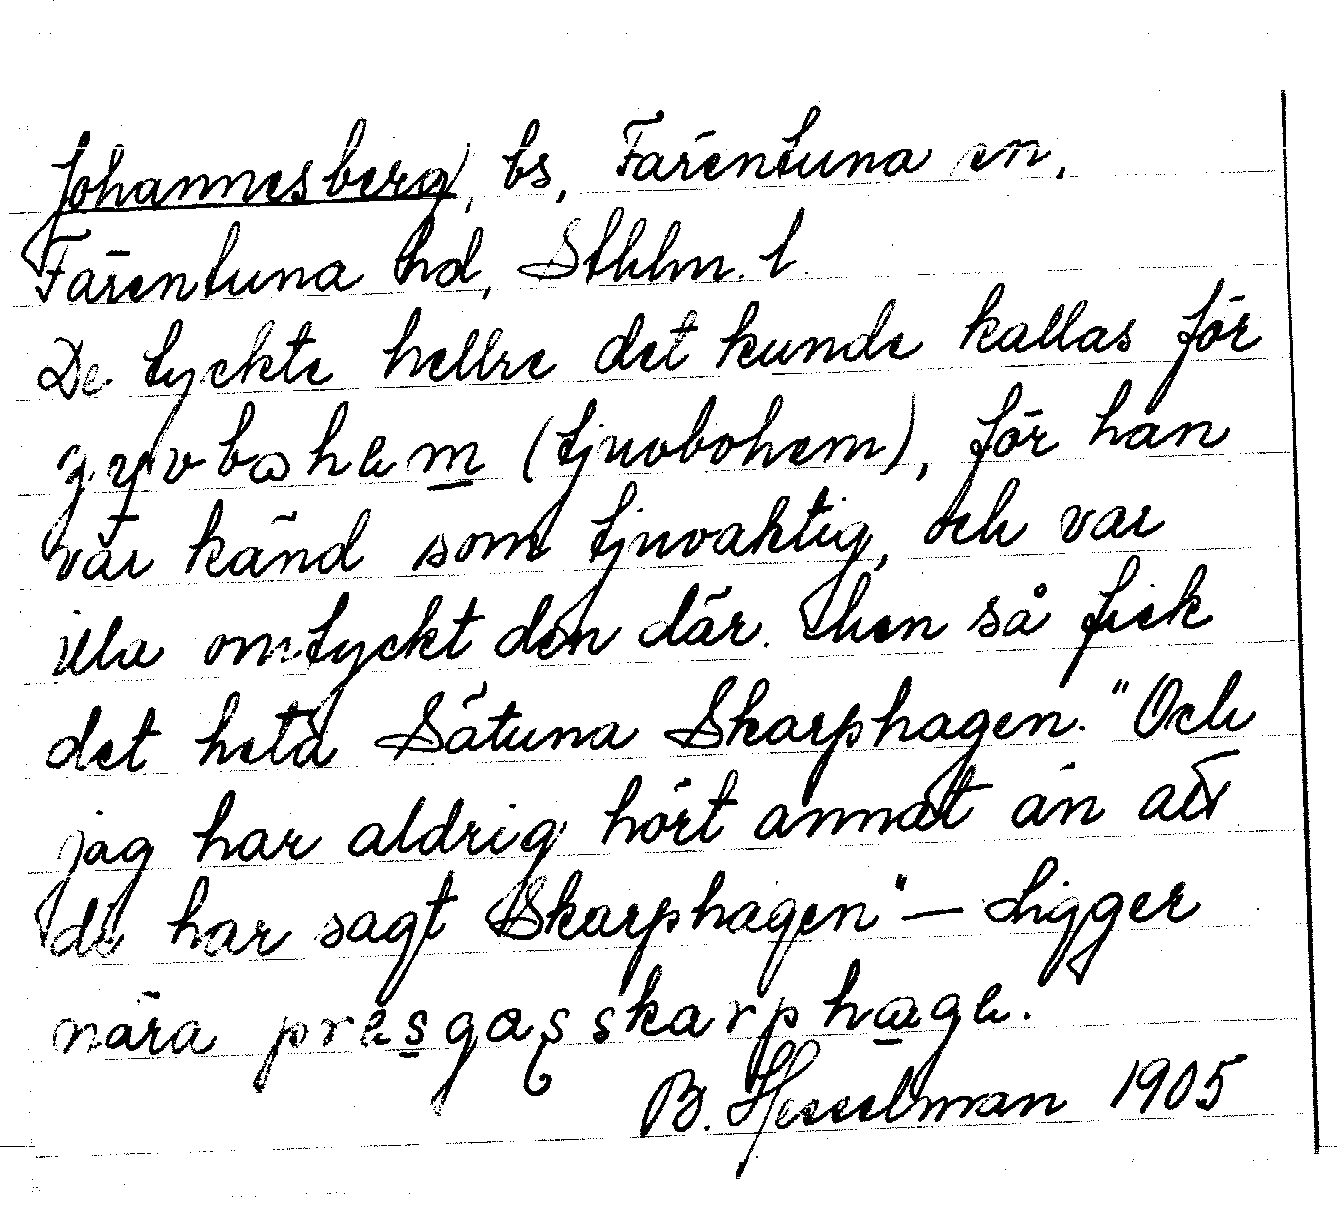 Johannesberg, bs, Färentuna sn,
Färentuna hd, Sthlm. l.
De tyckte hellre det kunde kallas för
(tjuvbohem), för han
var känd som tjuvaktig, och var
illa omtyckt den där. Men så fick
det heta Sätuna Skarphagen. "Och
jag har aldrig hört annat än att
di har sagt Skarphagen" — Ligger
nära
B. Hesselman 1905